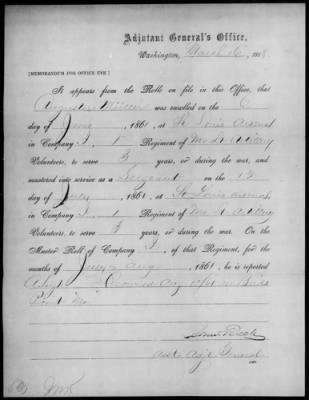 Adjutant General's Office,
Washington, March 6, 1868
[MEMORANDUM FOR OFFICE USE.]
It appears from the Rolls on file in this Office, that
Augustus was enrolled on the 6
day of June, 1861, at St Louis Arsenal
in Company I, 1 Regiment of Mo Lt Artillery
Volunteers, to serve 3 years, or during the war, and
mustered into service as a Sergeant on the 12
day of , 1861, at St Louis Arsenal,
in Company I, 1 Regiment of Mo Lt Artillery
Volunteers, to serve 3 years, or during the war. On the
Muster Roll of Company I of that Regiment, for the
months of & Aug 1861, he is reported
Absent Wounded Aug 10/61
Mo.
Asst Adjt General